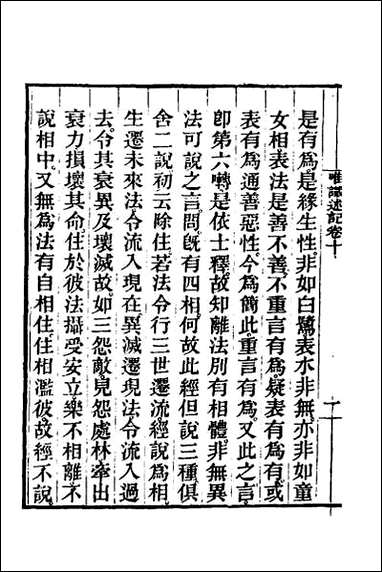 唯識述記卷十 一
是有爲是緣生性非如白鷺表水非無亦非如童
女相表法是善不善。不重言有爲。疑表有爲有。或
表有爲通善惡性。今爲簡此。重言有爲。又此之言。
卽第六囀。是依士釋。故知離法別有相體。非無異
法可說之言。問。旣有四相。何故此經但說三種。俱
舍二說。初云除住。若法令行三世遷流。經說爲相。
生遷未來法。令流入現在。異滅遷現法。令流入過
去。令其衰異及壞滅故。如三怨敵。見怨處林。牽出
衰力損壞其命。住於彼法攝受安立。樂不相離。不
說相中。又無爲法有自相住。住相濫彼。故經不說。